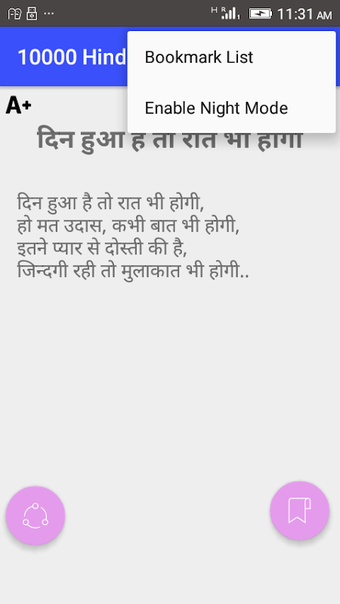 H R 11:31 AM
10000 Hind
Bookmark List
Enable Night Mode
A+
दिन हुआ है तो रात भी होगी
दिन हुआ है तो रात भी होगी,
हो मत उदास, कभी बात भी होगी,
इतने प्यार से दोस्ती की है,
जिन्दगी रही तो मुलाकात भी होगी..